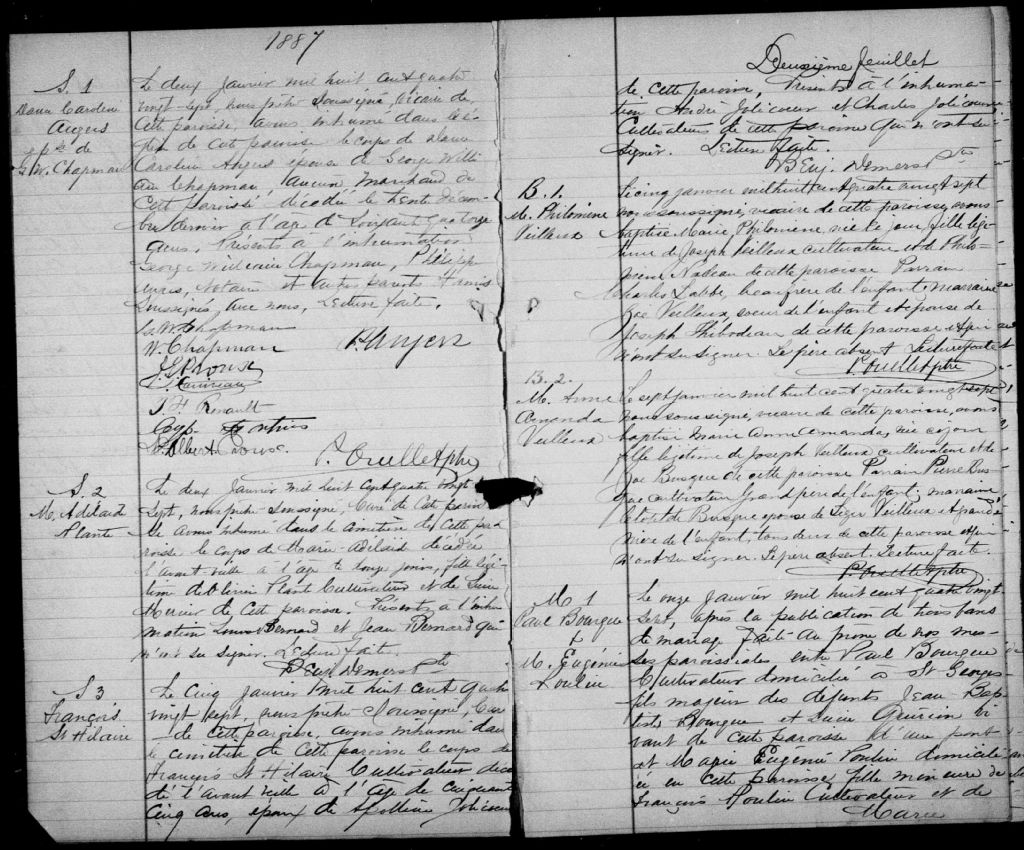 1887
S. 1
Dame Caroline
Angers
épse de
G. W. Chapman
Le deux Janvier mil huit cent quatre
vingt-sept nous prêtre soussigné, vicaire de
cette paroisse, avons inhumé dans l'é-
glise de cette paroisse le corps de Dame
Caroline Angers épouse de George Willi
am Chapman, ancien marchand de
cette paroisse décédée le trente décem-
bre dernier à l'âge de soixante quatorze
ans. Présents à l'inhumation
George William Chapman, Philippe
Notaire et autres parents et amis
soussignés avec nous, Lecture faite.
G. W. Chapman
W. Chapman P. Angers
T. H. Renault
P. Ouellet ptre
S. 2
M. Adélaid
Plante
Le deux Janvier mil huit cent quatre vingt
sept, nous prêtre soussigné, Curé de cette parois
se avons inhumé dans le cimetière de cette pa
roisse le corps de Marie-Adélaid décédée
l'avant veille à l'âge de jours, fille légi
time de Plante Cultivateur et de
Mercier de cette paroisse. Présents à l'inhu
mation Louis Bernard et Jean Bernard qui
n'ont su signer. Lecture faite.
Benj. Demers Ptre
S 3
François
St Hilaire
Le Cinq janvier mil huit cent quatre
vingt sept, nous prêtre soussigné, Curé
de cette paroisse, avons inhumé dans
le cimetière de cette paroisse le corps de
François St Hilaire Cultivateur décé
dé l'avant veille à l'âge de cinquante
cinq ans, époux de Jolicoeur
Deuxième feuillet
de cette paroisse, Présents à l'inhuma-
tion André Jolicoeur et Charles Jolicoeur
Cultivateurs de cette paroisse qui n'ont su
signer. Lecture faite.
Benj. Demers Ptre
B. 1.
M. Philomène
Veilleux
Le cinq janvier mil huit cent quatre vingt sept
nous soussigné, vicaire de cette paroisse, avons
baptisé Marie Philomène, née le jour, fille légi-
time de Joseph Veilleux cultivateur et de Philo-
mène Nadeau de cette paroisse Parrain
Charles Labbé, beau frère de l'enfant Marraine
Zoé Veilleux, soeur de l'enfant et épouse de
Joseph Thibodeau de cette paroisse et qui
n'ont su signer. Le père absent Lecture faite
P. Ouellet ptre
B. 2.
M. Anne
Amanda
Veilleux
Le sept janvier mil huit cent quatre vingt sept
nous soussigné, vicaire de cette paroisse, avons
baptisé Marie Anne Amanda, née ce jour
fille légitime de Joseph Veilleux cultivateur et de
Zoé Busque de cette paroisse Parrain Pierre Bus
que cultivateur Grand père de l'enfant; marraine
Clotilde Busque épouse de Léger Veilleux et grand'
mère de l'enfant, tous deux de cette paroisse et qui
n'ont su signer. Le père absent. Lecture faite.
P. Ouellet ptre
M 1
Paul Bourque
+
M. Eugénie
Poulin
Le onze Janvier mil huit cent quatre vingt
sept, après la publication de trois bans
de mariage faite au prône de nos mes-
ses paroissiales entre Paul Bourque
Cultivateur domicilié à St Georges
fils majeur des défunts Jean Bap
tiste Bourque et Lucie Guérin vi
vant de cette paroisse d'une part
et Marie Eugénie Poulin domicilié
e en cette paroisse, fille mineure de
François Poulin Cultivateur et de
Marie